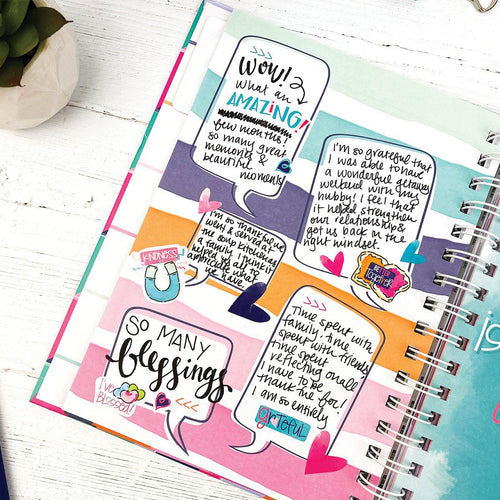 WOW!
What an
AMAZING!
few months!
So many great
memories &
beautiful
moments!
I'm so grateful that
I was able to have
a wonderful getaway
weekend with my
hubby! I feel that
it helped strengthen
our relationship &
got us back in the
right mindset.
BETTER
together
I'm so thankful we
went & served as
a family at
the soup kitchen.
I think it
helped us all
appreciate what
we have
KINDNESS
SO MANY
blessings
I'VE
BLESSED!
Time spent with
family, time
spent with friends
time spent
reflecting on all
I have to be
thankful for!
I am so entirely
grateful
is